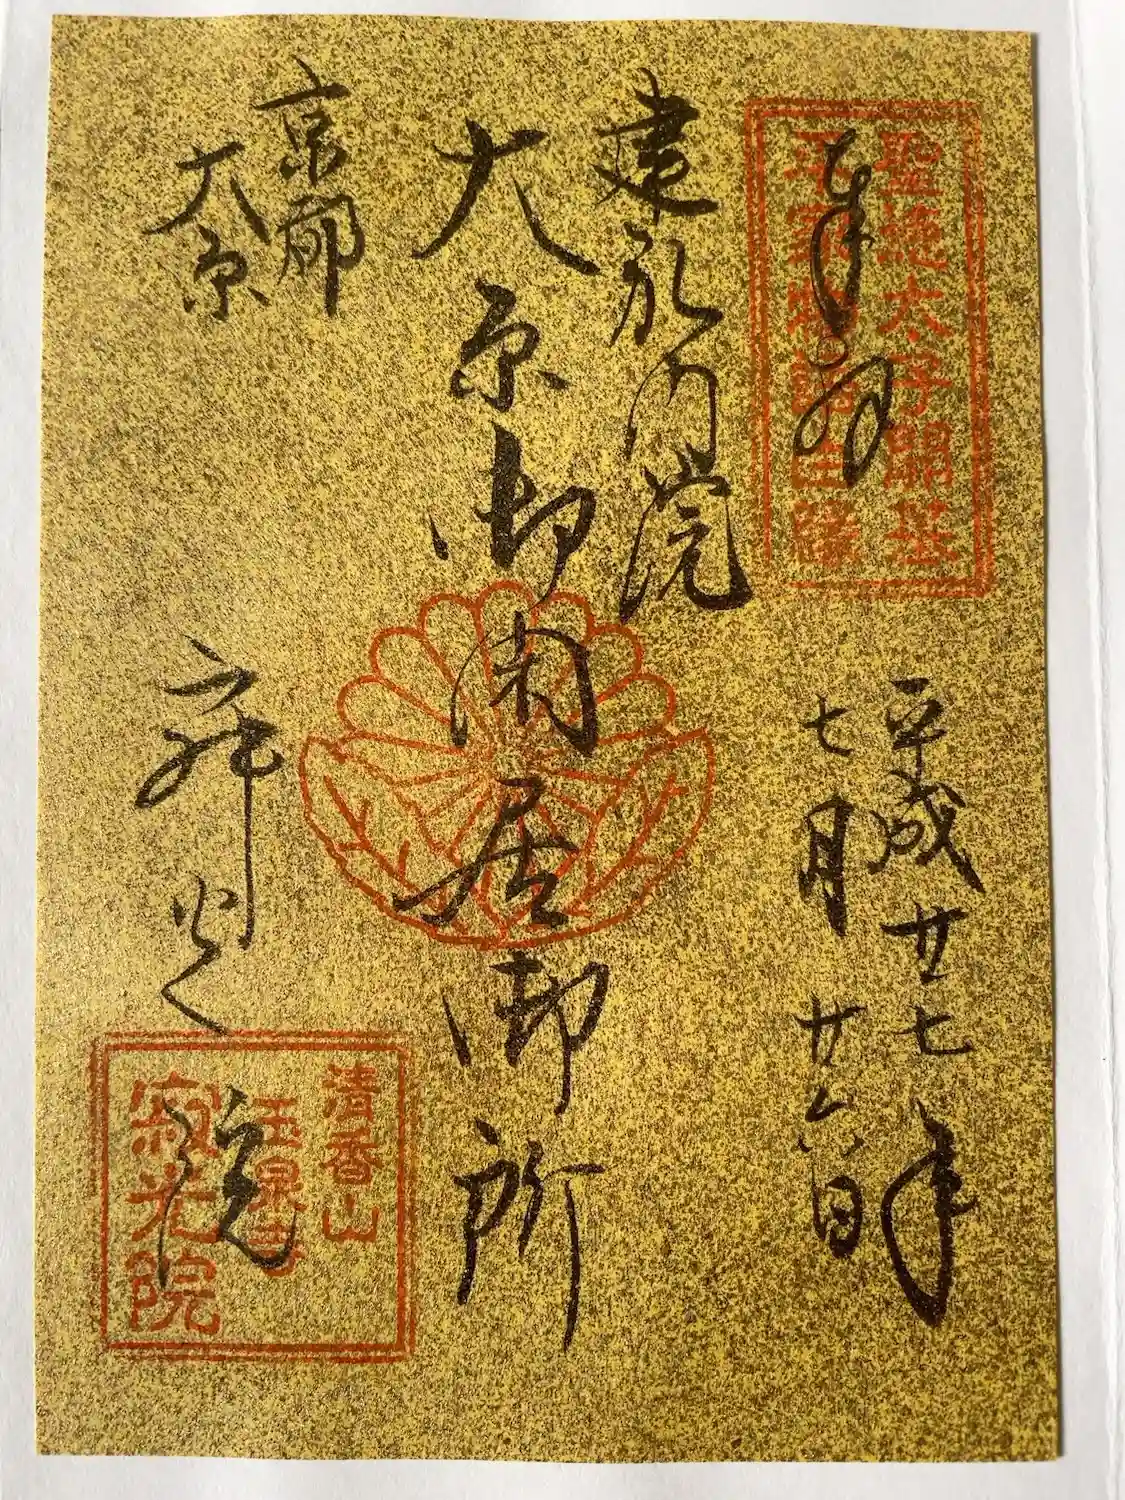 聖徳太子開基
平家物語由縁
奉拝
平成廿七年
七月廿六日
建礼門院
大原御閑居御所
京都
大原
寂光院
清香山
玉泉寺
寂光院